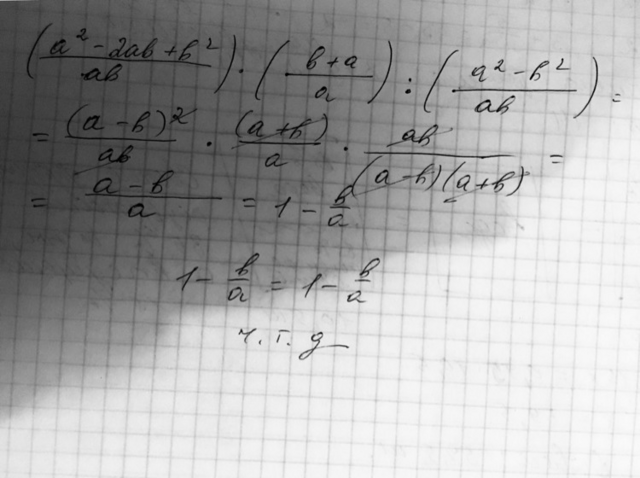 (a² - 2ab + b² / ab) · (b + a / a) : (a² - b² / ab) =
= (a - b)² / ab · (a + b) / a · ab / (a - b)(a + b) =
= a - b / a = 1 - b/a
1 - b/a = 1 - b/a
ч.т.д